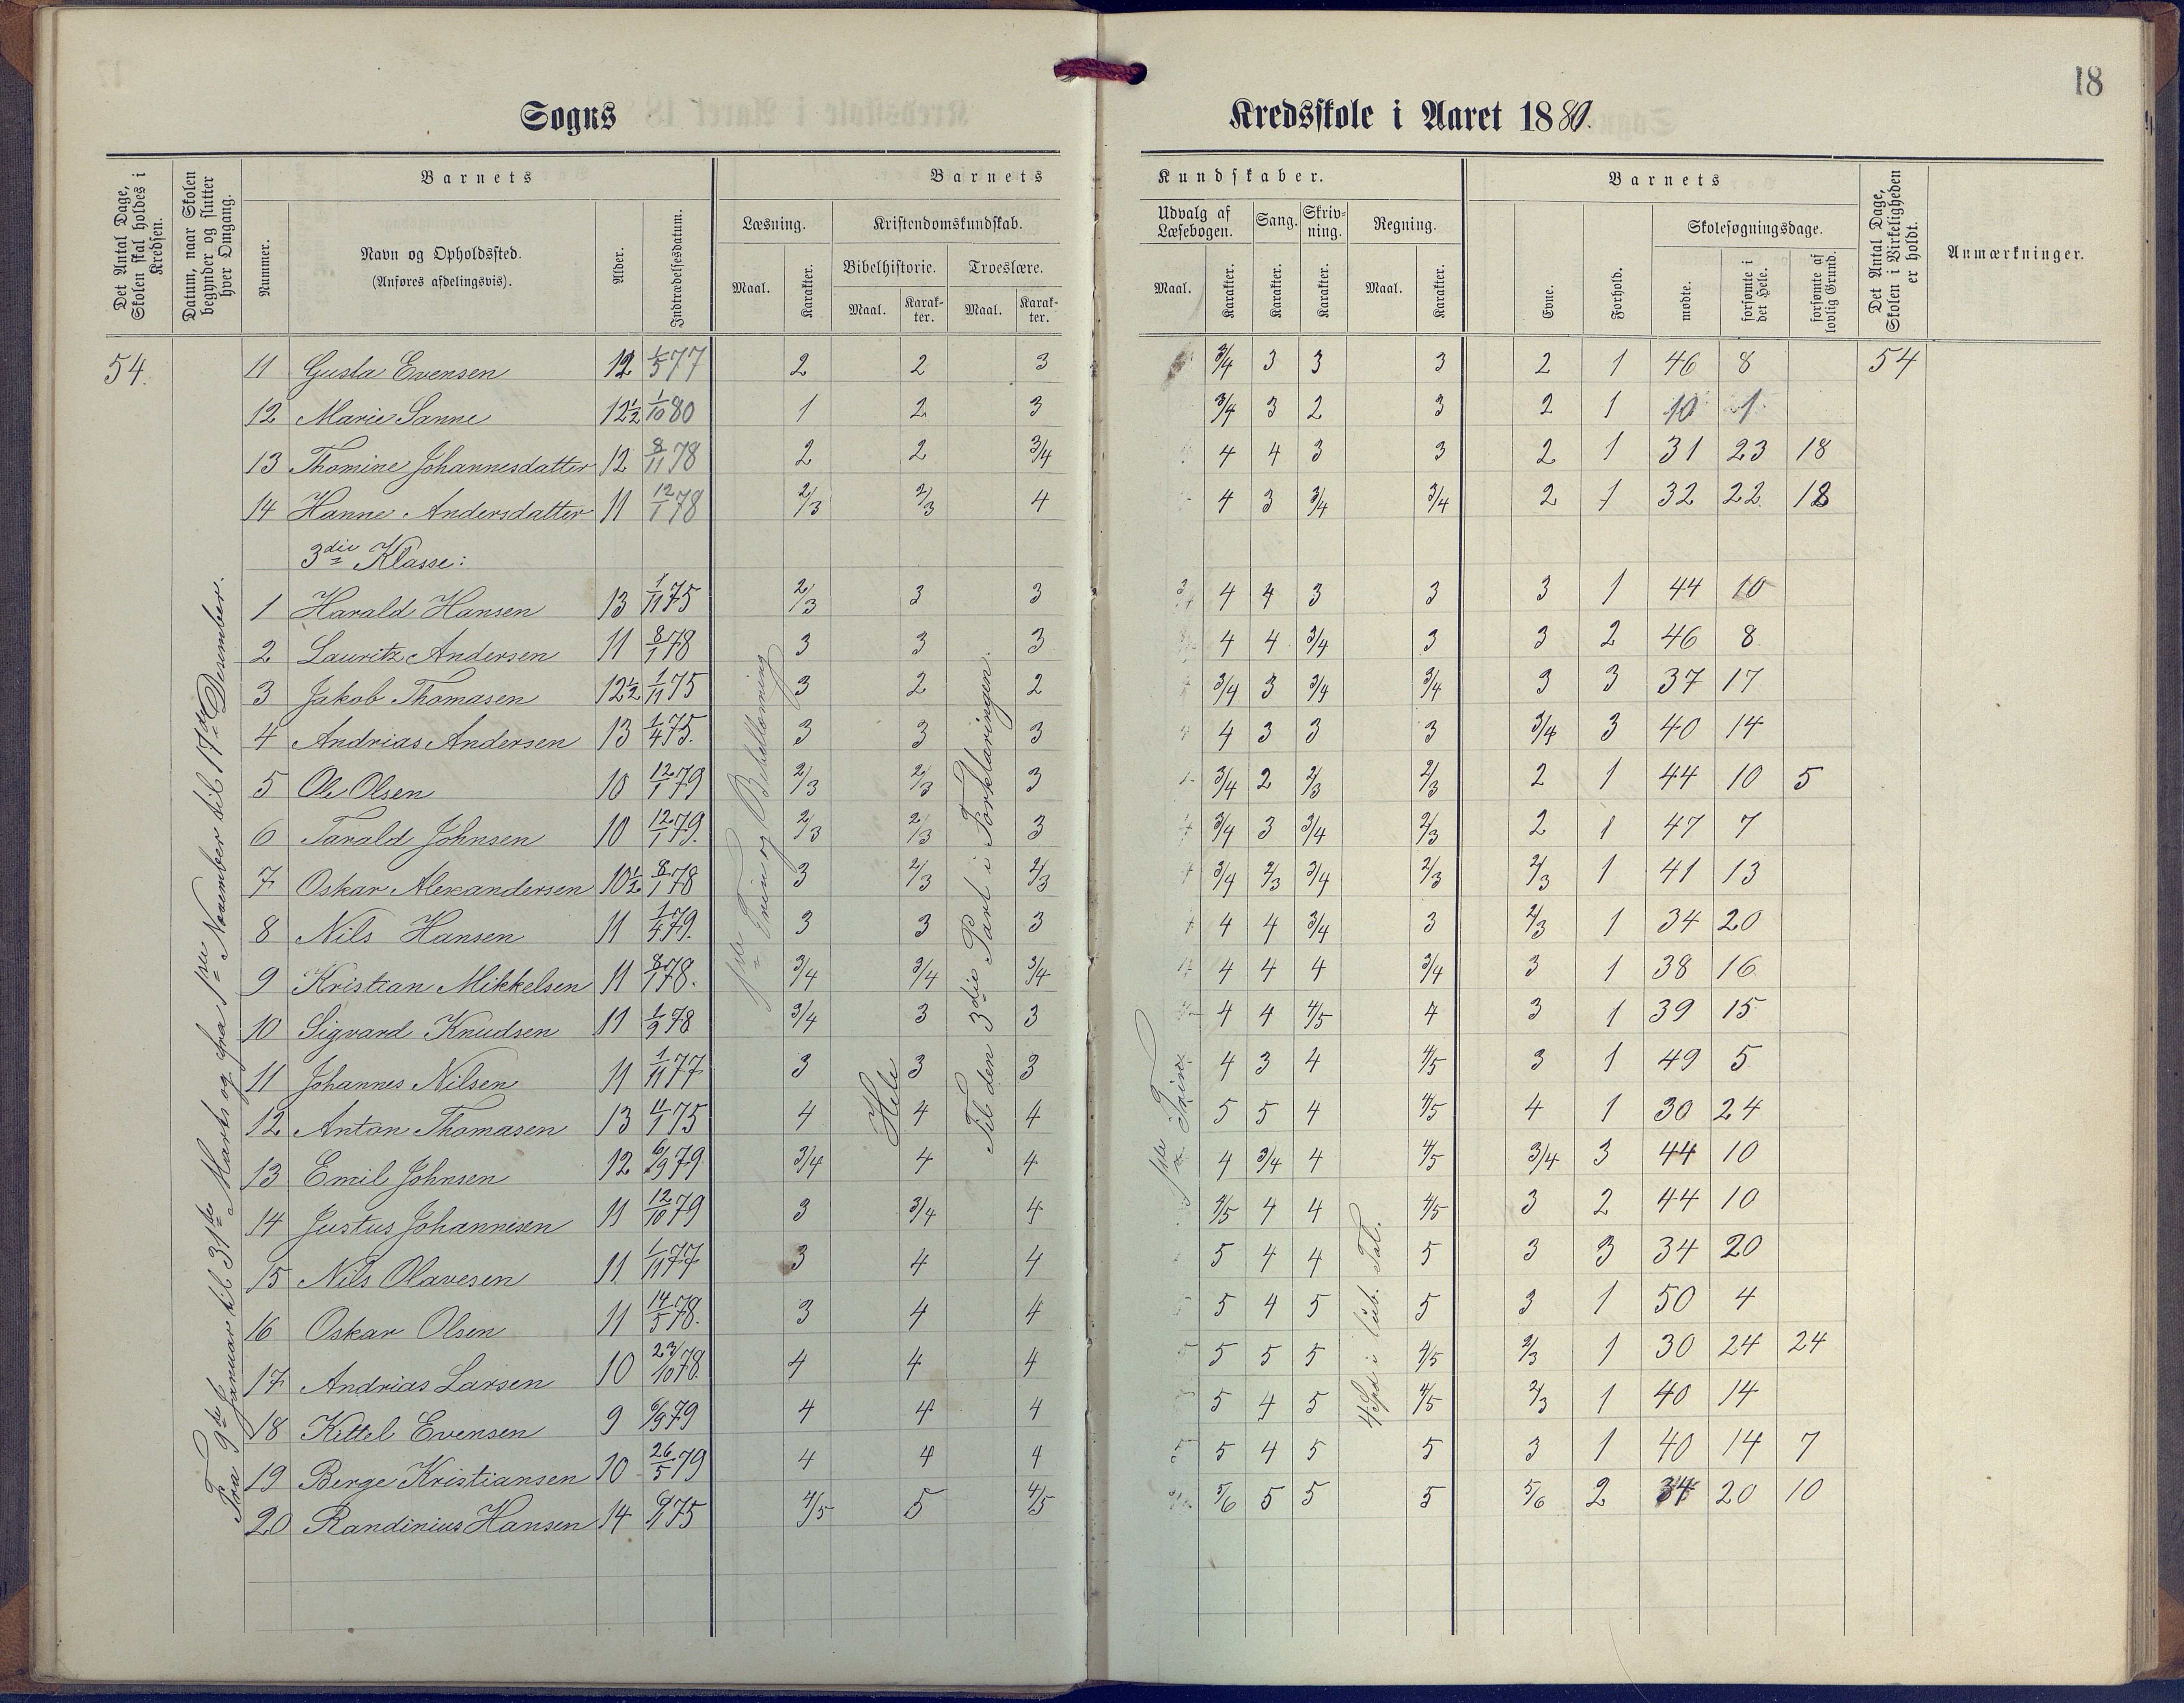 18
Sogns Kredsskole i Aaret 1880.
Det Antal Dage, Skolen skal holdes i Kredsen.
Datum, naar Skolen begynder og slutter hver Omgang.
Barnets
Nummer.
Navn og Opholdssted.
(Anføres afdelingsvis).
Alder.
Indtrædelsesdatum.
Barnets Kundskaber.
Læsning.
Maal. Karakter.
Kristendomskundskab.
Bibelhistorie. Troeslære.
Maal. Karakter. Maal. Karakter.
Udvalg af Læsebogen. Sang. Skrivning. Regning.
Maal. Karakter. Karakter. Karakter. Maal. Karakter.
Barnets
Evne. Forhold.
Skolesøgningsdage.
mødte. forsømte i det Hele. forsømte af lovlig Grund.
Det Antal Dage, Skolen i Virkeligheden er holdt.
Anmærkninger.
54. 11 Gusta Evensen 12 1/5 77 2 2 3 3/4 3 3 3 2 1 46 8 54
12 Marie Sanne 12½ 1/10 80 1 2 3 3/4 3 2 3 2 1 10 1
13 Thomine Johannesdatter 12 8/11 78 2 2 3/4 4 4 3 3 2 1 31 23 18
14 Hanne Andersdatter 11 12/1 78 2/3 2/3 4 4 3 3/4 3/4 2 1 32 22 18
3die Klasse:
1 Harald Hansen 13 1/11 75 2/3 3 3 4 4 3 3 3 1 44 10
2 Lauritz Andersen 11 8/1 78 3 3 3 4 4 3/4 3 3 2 46 8
3 Jakob Thomasen 12½ 1/11 75 3 2 2 3/4 3 3/4 3/4 3 3 37 17
4 Andrias Andersen 13 1/4 75. 3 3 3 4 3 3 3 3/4 3 40 14
5 Ole Olsen 10 12/1 79 2/3 2/3 3 3/4 2 2/3 2/3 2 1 44 10 5
6 Tarald Johnsen 10 12/1 79. 2/3 2/3 3 3/4 3 3/4 2/3 2 1 47 7
7 Oskar Alexandersen 10½ 8/1 78 3 2/3 2/3 3/4 2/3 3/4 2/3 2/3 1 41 13
8 Nils Hansen 11 1/4 79. 3 3 3 4 4 3/4 3 2/3 1 34 20
9 Kristian Mikkelsen 11 8/1 78. 3/4 3/4 3/4 4 4 4 3/4 3 1 38 16
10 Sigvard Knudsen 11 1/9 78 3/4 3 3 4 4 4/5 4 3 1 39 15
11 Johannes Nilsen 11 1/11 77 3 3 3 4 3 4 4/5 3 1 49 5
12 Anton Thomasen 13 11/1 75 4 4 4 5 5 4 4/5 4 1 30 24
13 Emil Johnsen 12 6/9 79 3/4 4 4 4 3/4 4 4/5 3/4 3 44 10
14 Justus Johannisen 11 12/10 79 3 3/4 4 4/5 4 4 4/5 3 2 44 10
15 Nils Olavesen 11 1/11 77 3 4 4 5 4 4 5 3 3 34 20
16 Oskar Olsen 11 14/5 78. 3 4 4 5 4 5 5 3 1 50 4
17 Andrias Larsen 10 23/10 78. 4 4 4 5 5 5 4/5 2/3 1 30 24 24
18 Kittel Evensen 9 6/9 79 4 4 4 5 4 5 4/5 2/3 1 40 14
19 Berge Kristiansen 10 26/5 79 4 4 4 5 4 5 5 3 1 40 14 7
20 Randinius Hansen 14 75 4/5 5 4/5 5/6 5 5 5 5/6 2 34 20 10
Fra 9de Januar til 31te Marts og fra 1ste November til 17de Desember.
1ste Trin og Bibellæsning
Hele
Til den 3die Part i Forklaringen.
1ste Trin
4 Spd i ub. Tal.